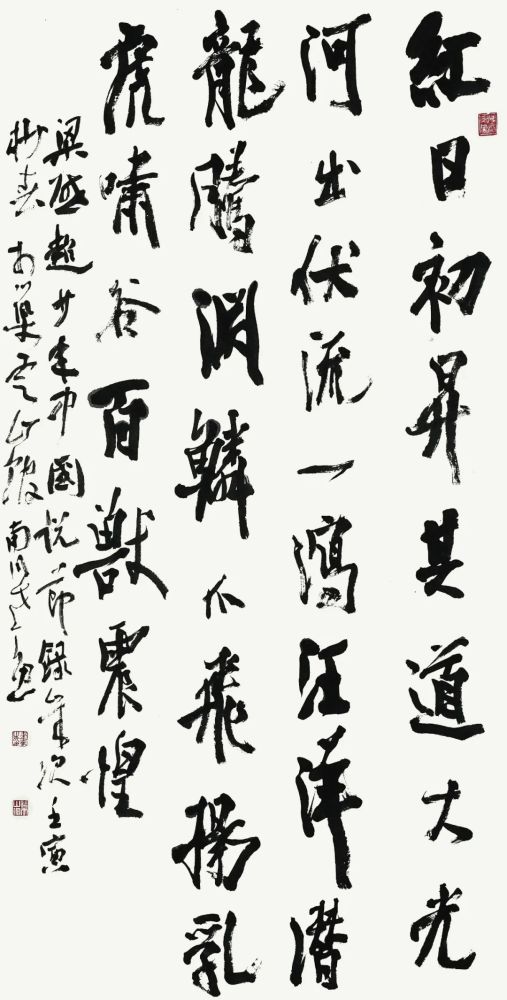 紅日初昇其道大光
河出伏流一瀉汪洋潛
龍騰淵鱗爪飛揚乳
虎嘯谷百獸震惶
梁啟超少年中國說節錄歲次壬寅
抄春於巢雲山館南